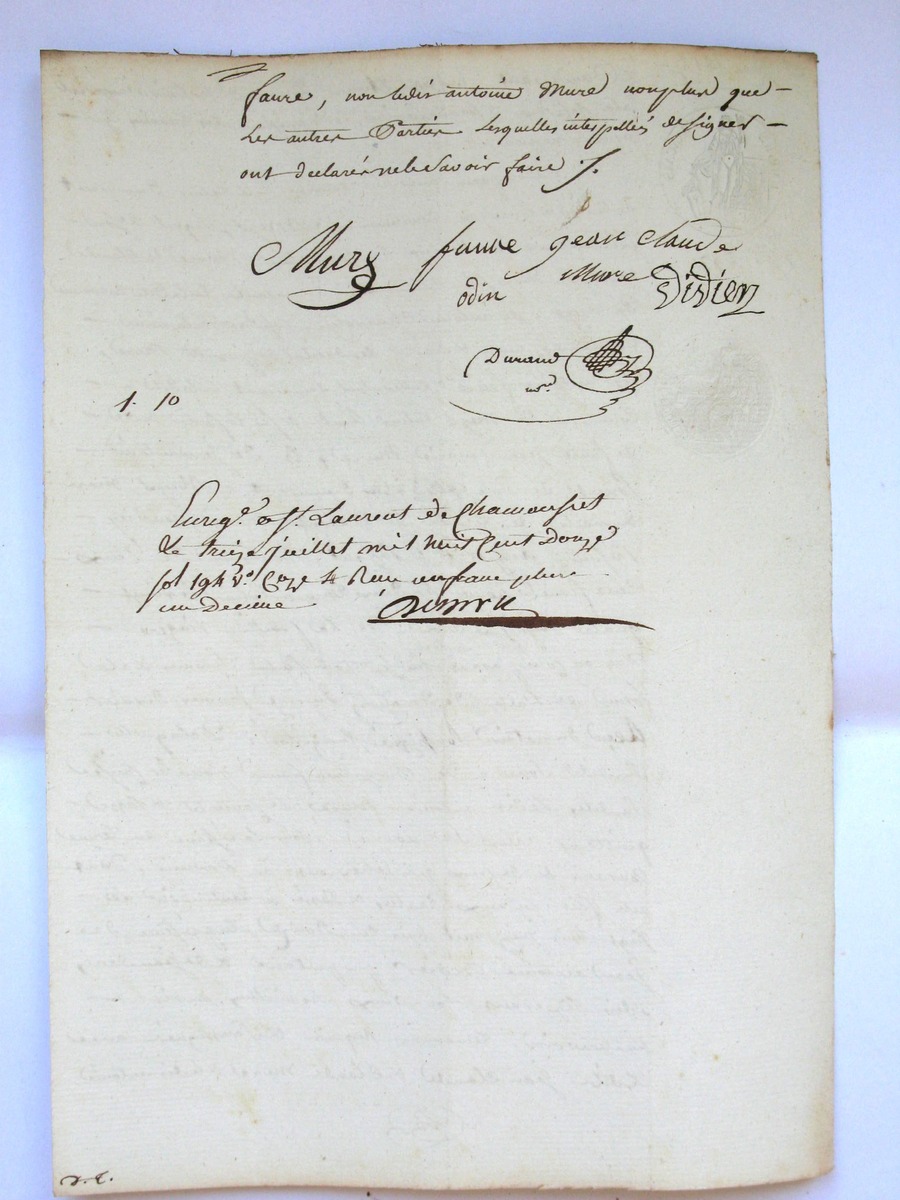 faure, non ledit antoine Mure nonplus que
Les autres Parties Lesquelles interpellés de signer
ont declarés ne le Savoir faire /.
Mure faure jean claude
odin Mure Didier
Durand
nre
1. 10
Enregé. a St. Laurent de Chamousset
Le treize juillet mil huit Cent Douze
fol 194 vo. Caze 4 Reçu un franc plus
un Decime